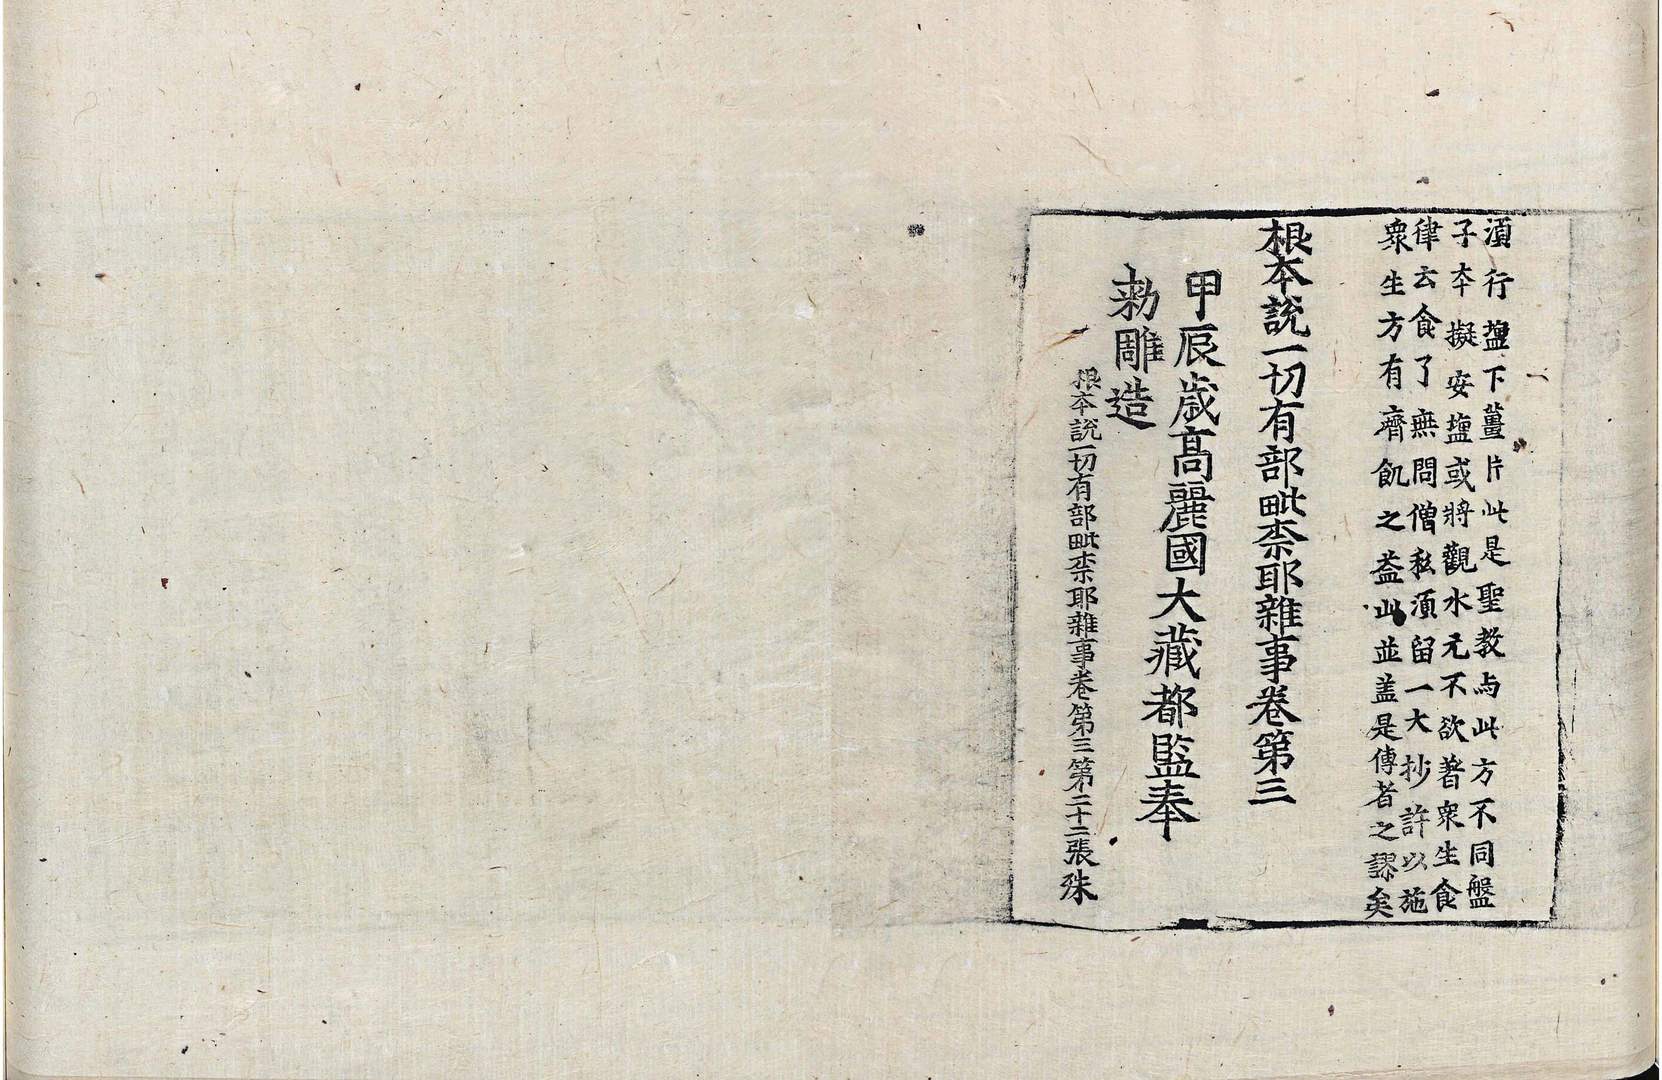 湏行盐下薑片此是聖教与此方不同盤
子夲擬安塩或將觀水元不欲著衆生食
律云食了無問僧私湏留一大抄許以施
衆生方有齊飢之益此並盖是傳者之謬矣
根夲說一切有部毗柰耶雜事卷第三
甲辰歲高麗國大藏都監奉
勑雕造
根夲說一切有部毗柰耶雜事卷第三第二十二張 殊